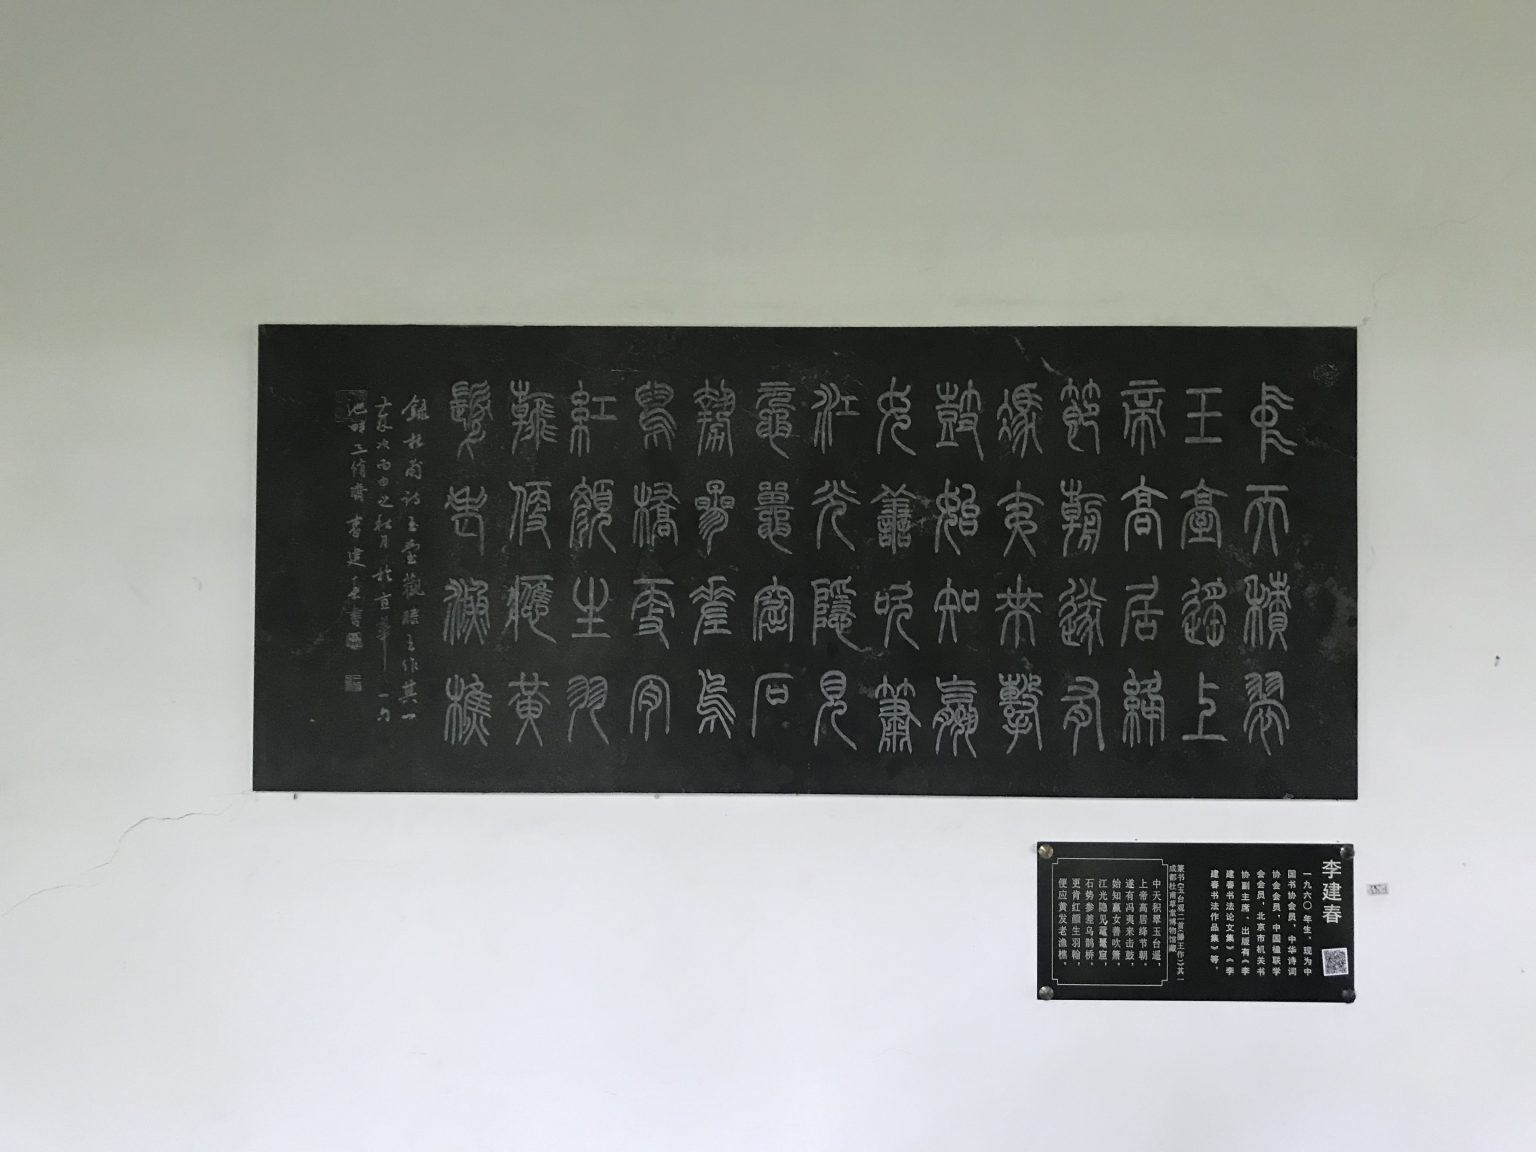 中天積翠
玉臺遙上
帝高居絳
節朝遂有
馮夷來擊
鼓始知嬴
女善吹簫
江光隱見
黿鼉窟石
勢參差烏
鵲橋更肯
紅顏生羽
翰便應黃
髮老漁樵
錄杜甫詩玉臺觀滕王作其一
歲次丙申之秋月於京華一勺
池畔三修齋 李建春書
李建春
一九六〇年生、现为中
国书协会员、中华诗词
协会会员、中国楹联学
会会员，北京市机关书
协副主席、出版有《李
建春书法论文集》《李
建春书法作品集》等。
篆书《玉台观二首(滕王作)》其一
成都杜甫草堂博物馆藏
中天积翠玉台遥，
上帝高居绛节朝。
遂有冯夷来击鼓，
始知嬴女善吹箫。
江光隐见鼋鼍窟，
石势参差乌鹊桥。
更肯红颜生羽翰，
便应黄发老渔樵。